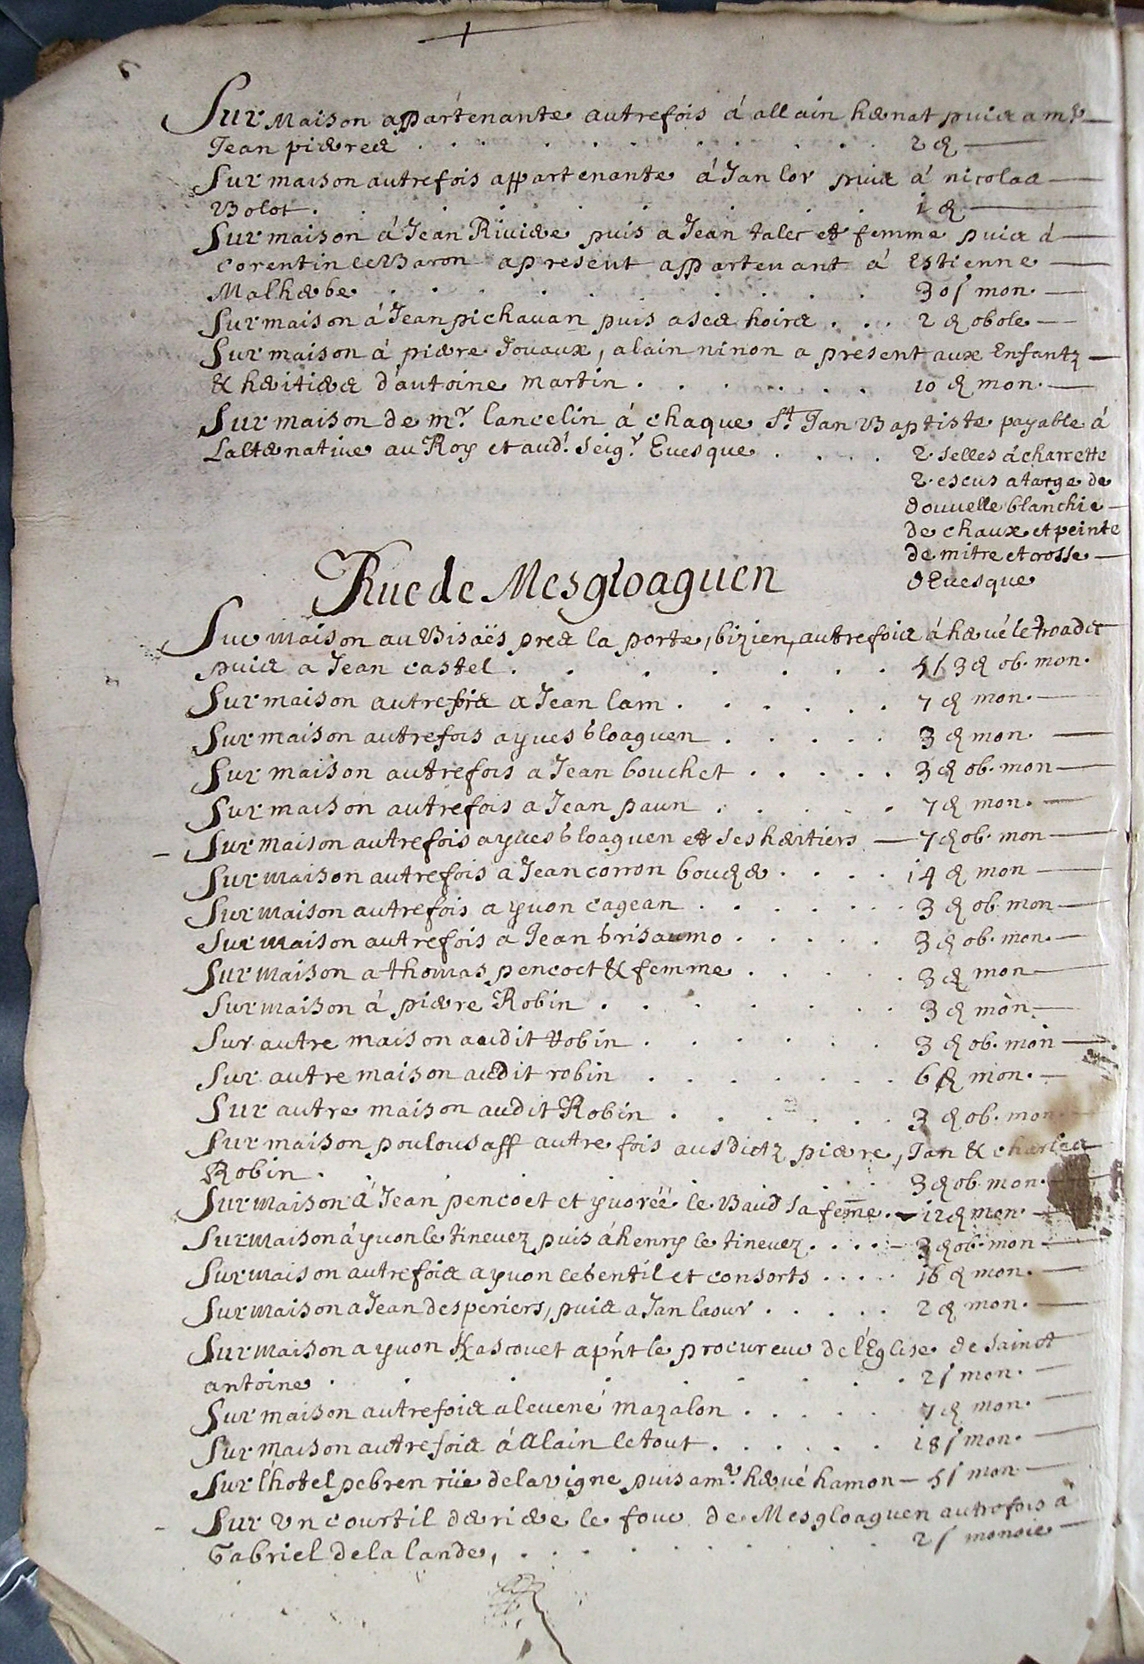 Sur Maison appartenante autrefois á allain hervat puis a mr
Jean pierres . . . . . . . . 2 d
Sur maison autrefois appartenante á Jan lov puis á nicolas
Bolot . . . . . . . 1 d
Sur maison á Jean Riviere puis a Jean talec et femme puis á
Corentin le Baron apresent appartenant á Estienne
Malherbe . . . . . . . 30 s mon.
Sur maison á Jean pichavan puis a ses hoirs . . . 2 d obole
Sur maison á pierre Jouaux, alain ninon a present aux Enfantz
& heritiers d'antoine martin . . . . . . 10 d mon.
Sur maison de mr. lancelin á chaque St. Jan Baptiste payable á
Lalternative au Roy et aud. seigr. Evesque . . . . 2 selles á charrette
2. escus a targe de
douvelle blanchie
de chaux et peinte
de mitre et crosse
dEvesque
Rue de Mesgloaguen
Sur maison au Bisaës pres la porte, bizien, autrefois á hervé le troadec
puis a Jean castel . . . . . . . 5 s 3 d ob. mon.
Sur maison autrefois a Jean lam . . . . . . 7 d mon.
Sur maison autrefois a yves gloaguen . . . . . 3 d mon.
Sur maison autrefois a Jean bouchet . . . . . 3 d ob. mon
Sur maison autrefois a Jean paun . . . . . 7 d mon.
Sur maison autrefois a yves gloaguen et ses heritiers 7 d ob. mon
Sur maison autrefois a Jean corron boucher . . . . 14 d mon
Sur maison autrefois a yvon cagean . . . . . . 3 d ob mon
Sur maison autrefois a Jean brisaumo . . . . . 3 d ob. mon.
Sur maison a thomas pencoet & femme . . . . . 3 d mon
Sur maison á pierre Robin . . . . . . 3 d mon
Sur autre maison audit Robin . . . . . . 3 d ob. mon
Sur autre maison audit robin . . . . . . . 6 d mon.
Sur autre maison audit Robin . . . . . . 3 d ob. mon
Sur maison poulousaff autre fois ausdictz pierre, Jan & charles
Robin . . . . . 3 d ob. mon.
Sur maison á Jean pencoet et yvorée le Baud sa feme . 12 d mon
Sur maison á yvon le tinevez puis á henry le tinevez . . . . 3 d ob. mon
Sur maison autrefois a yvon le bentil et consorts . . . . 16 d mon.
Sur maison a Jean desperiers, puis a Jan laour . . . . . 2 d mon.
Sur maison a yvon Kascouet apñt le procureur de l'Eglise de sainct
antoine . . . . . . . . 2 s mon.
Sur maison autrefois a levené mazalon . . . . . 7 d mon.
Sur maison autrefois á allain le tout . . . . . . 18 s mon.
Sur l'hotel pebren rüe de la vigne puis a mr. hervé hamon 5 s mon
Sur vn courtil deriere le four de Mesgloaguen autrefois á
Gabriel de la lande, . . . . . . . . 2 s monoie